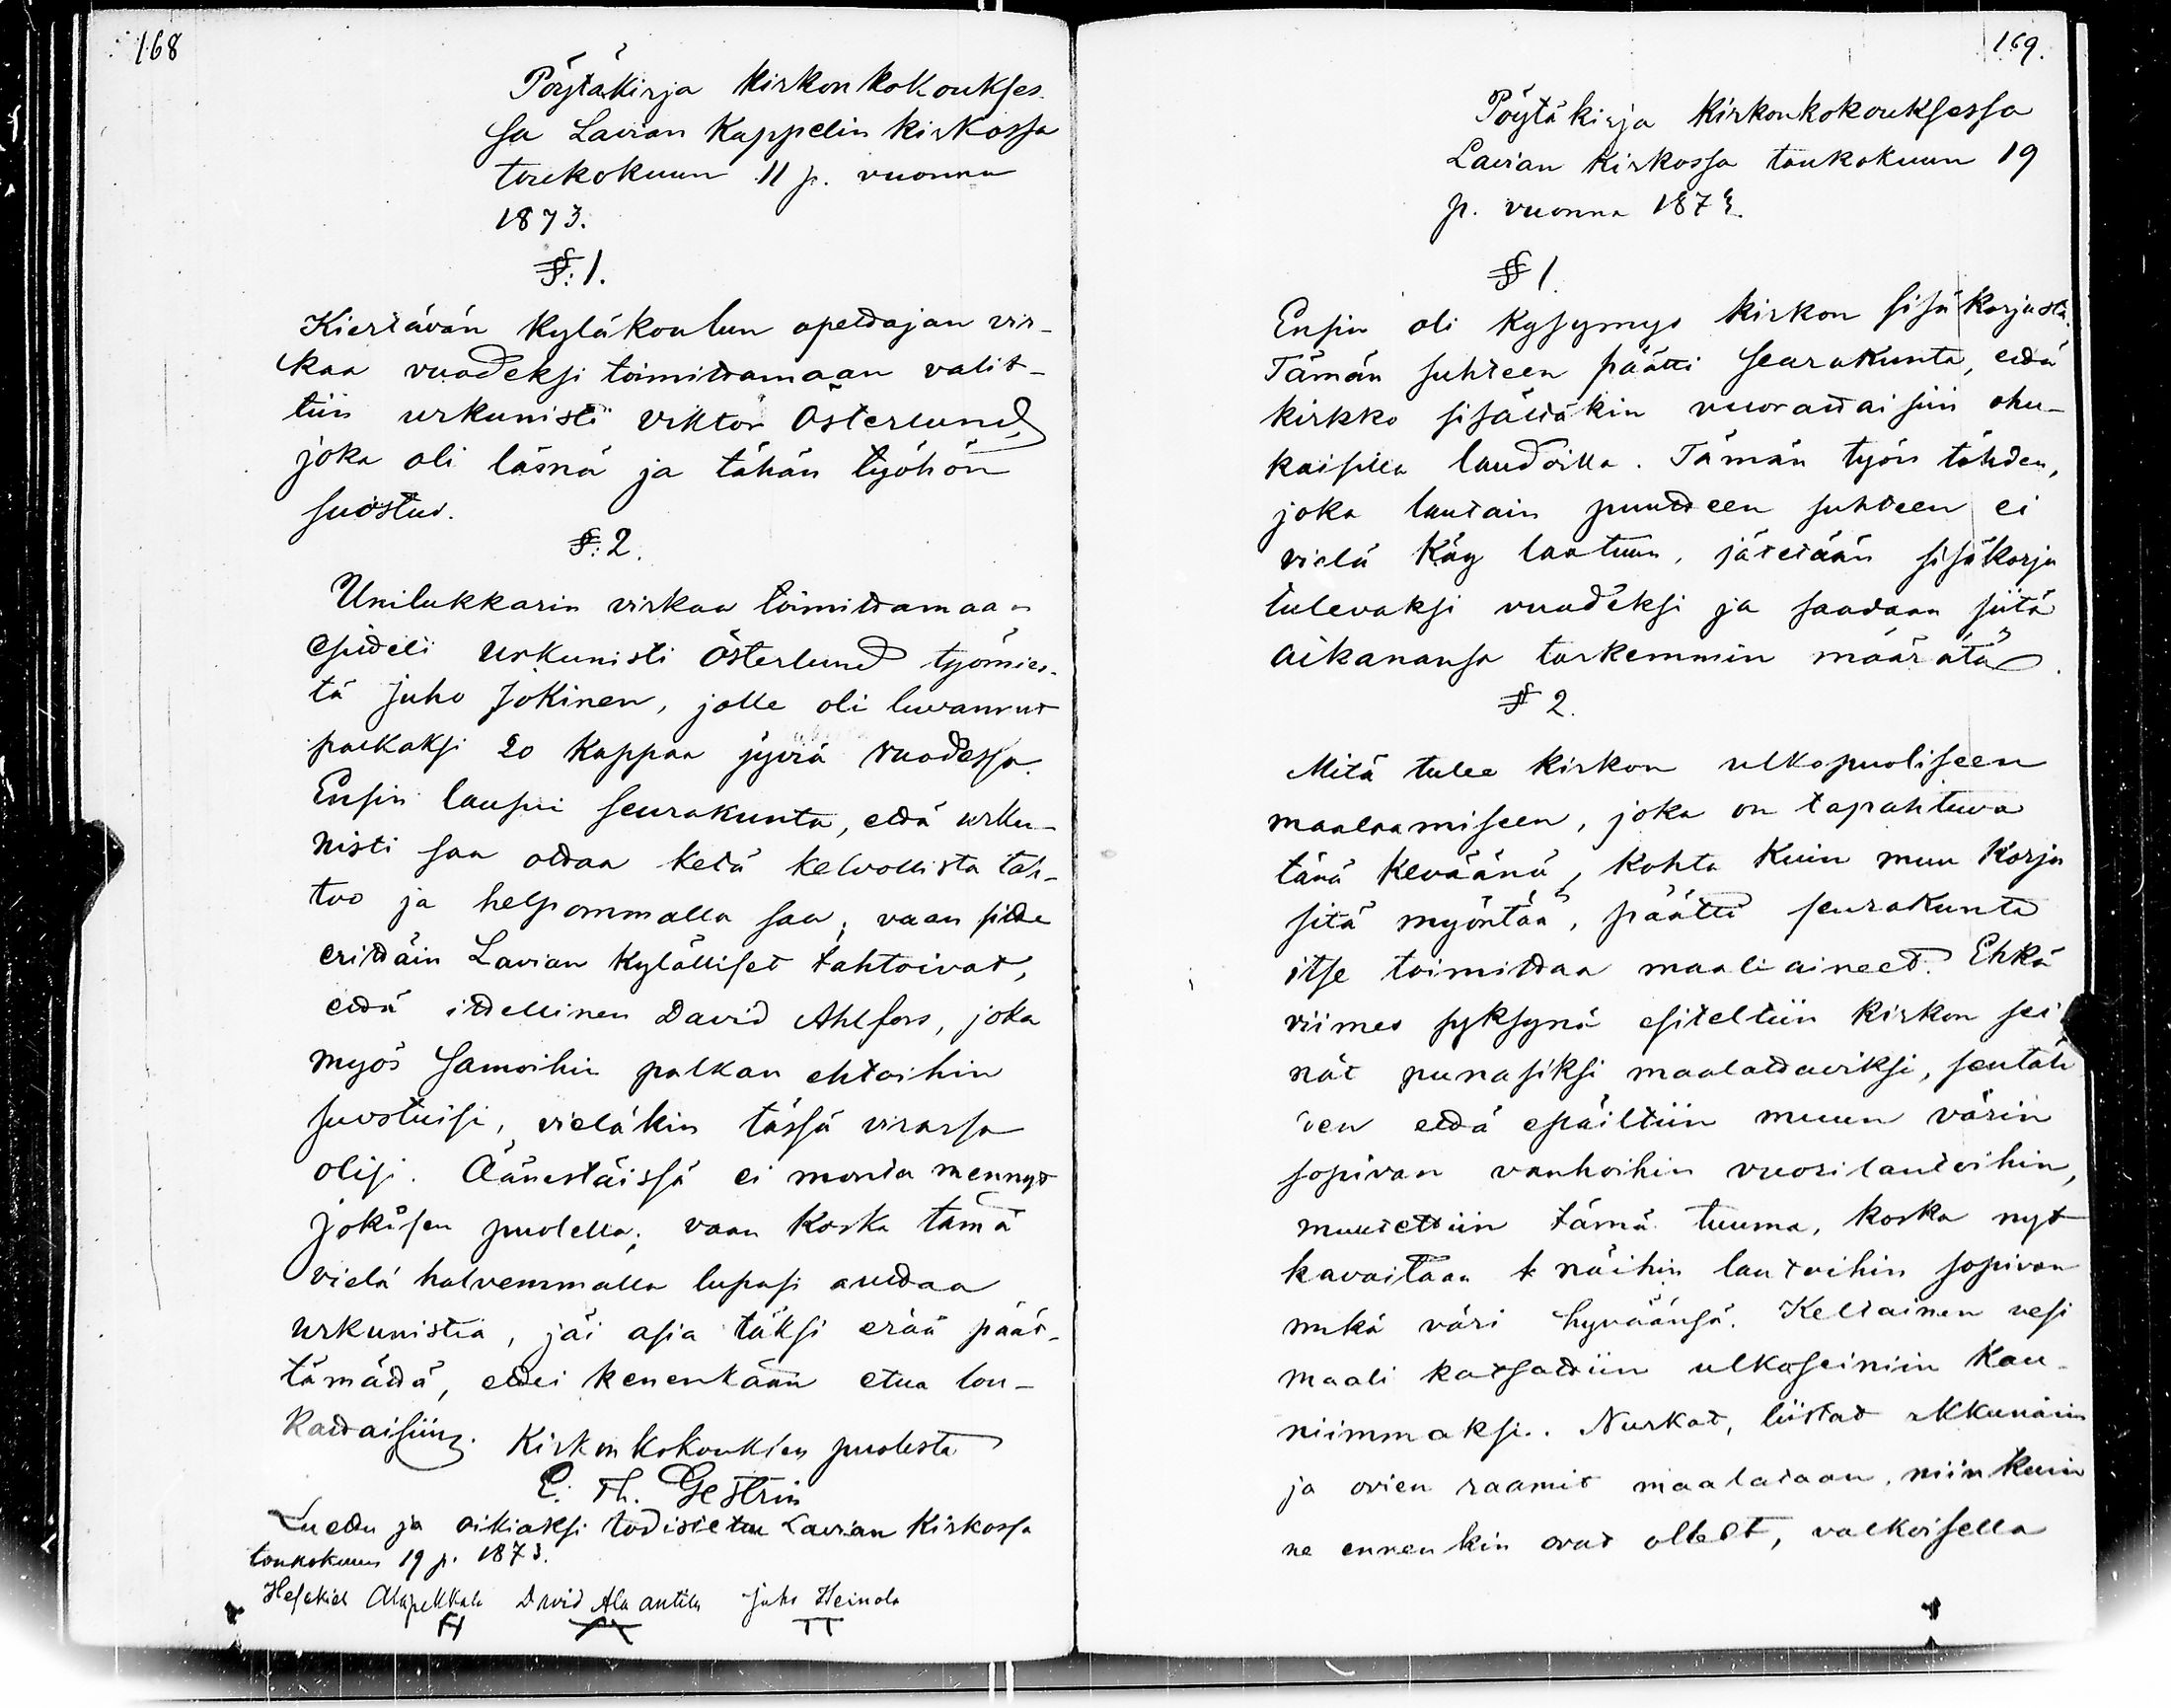 168
Pöytäkirja kirkonkokoukses-
sa Lavian Kappelin kirkossa
toukokuun 11 p. vuonna
1873.
§: 1.
Kiertävän kyläkoulun opettajan vir-
kaa vuodeksi toimittamaan valit-
tiin urkunisti Viktor Österlund,
joka oli läsnä ja tähän työhön
suostui.
§: 2.
Unilukkarin virkaa toimittamaan
esitteli urkunisti Österlund työmies-
tä Juho Jokinen, jolle oli luvannut
palkaksi 20 kappaa jyviä vuodessa.
Ensin lausui seurakunta, että urku-
nisti saa ottaa ketä kelvollista tah-
too ja helpommalla saa; vaan sitte
erittäin Lavian kylälliset tahtoivat,
että itsellinen David Ahlfors, joka
myös samoihin palkan ehtoihin
suostuisi, vieläkin tässä virassa
olisi. Äänestäissä ei monta mennyt
Jokisen puolella; vaan koska tämä
vielä halvemmalla lupasi auttaa
urkunistia, jäi asia täksi erää päät-
tämättä, ettei kenenkään etua lou-
kattaisiin. Kirkonkokouksen puolesta
E. Th. Gestrin
Luettu ja oikiaksi todistettu Lavian kirkossa
toukokuun 19 p. 1873.
Hesekiel Alapekkala David Ala antila Juho Heinola
169.
Pöytäkirja kirkonkokouksessa
Lavian kirkossa toukokuun 19
p. vuonna 1873.
§ 1.
Ensin oli kysymys kirkon sisäkorjusta.
Tämän suhteen päätti seurakunta, että
kirkko sisältäkin vuorattaisiin ohu-
kaisilla laudoilla. Tämän työn tähden,
joka lautain puutteen suhteen ei
vielä käy laatuun, jätetään sisäkorju
tulevaksi vuodeksi ja saadaan siitä
aikanansa tarkemmin määrätä.
§ 2.
Mitä tulee kirkon ulkopuoliseen
maalaamiseen, joka on tapahtuva
tänä keväänä, kohta kuin muu korju
sitä myöntää, päätti seurakunta
itse toimittaa maaliaineet. Ehkä
viimes syksynä esiteltiin kirkon sei
nät punasiksi maalattaviksi, sentäh
den että epäiltiin muun värin
sopivan vanhoihin vuorilautoihin,
muutettiin tämä tuuma, koska nyt
havaitaan näihin lautoihin sopivan
mikä väri hyväänsä. Keltainen vesi
maali katsottiin ulkoseiniin kau-
niimmaksi. Nurkat, liistat akkunain
ja ovien raamit maalataan, niinkuin
ne ennenkin ovat olleet, valkoisella